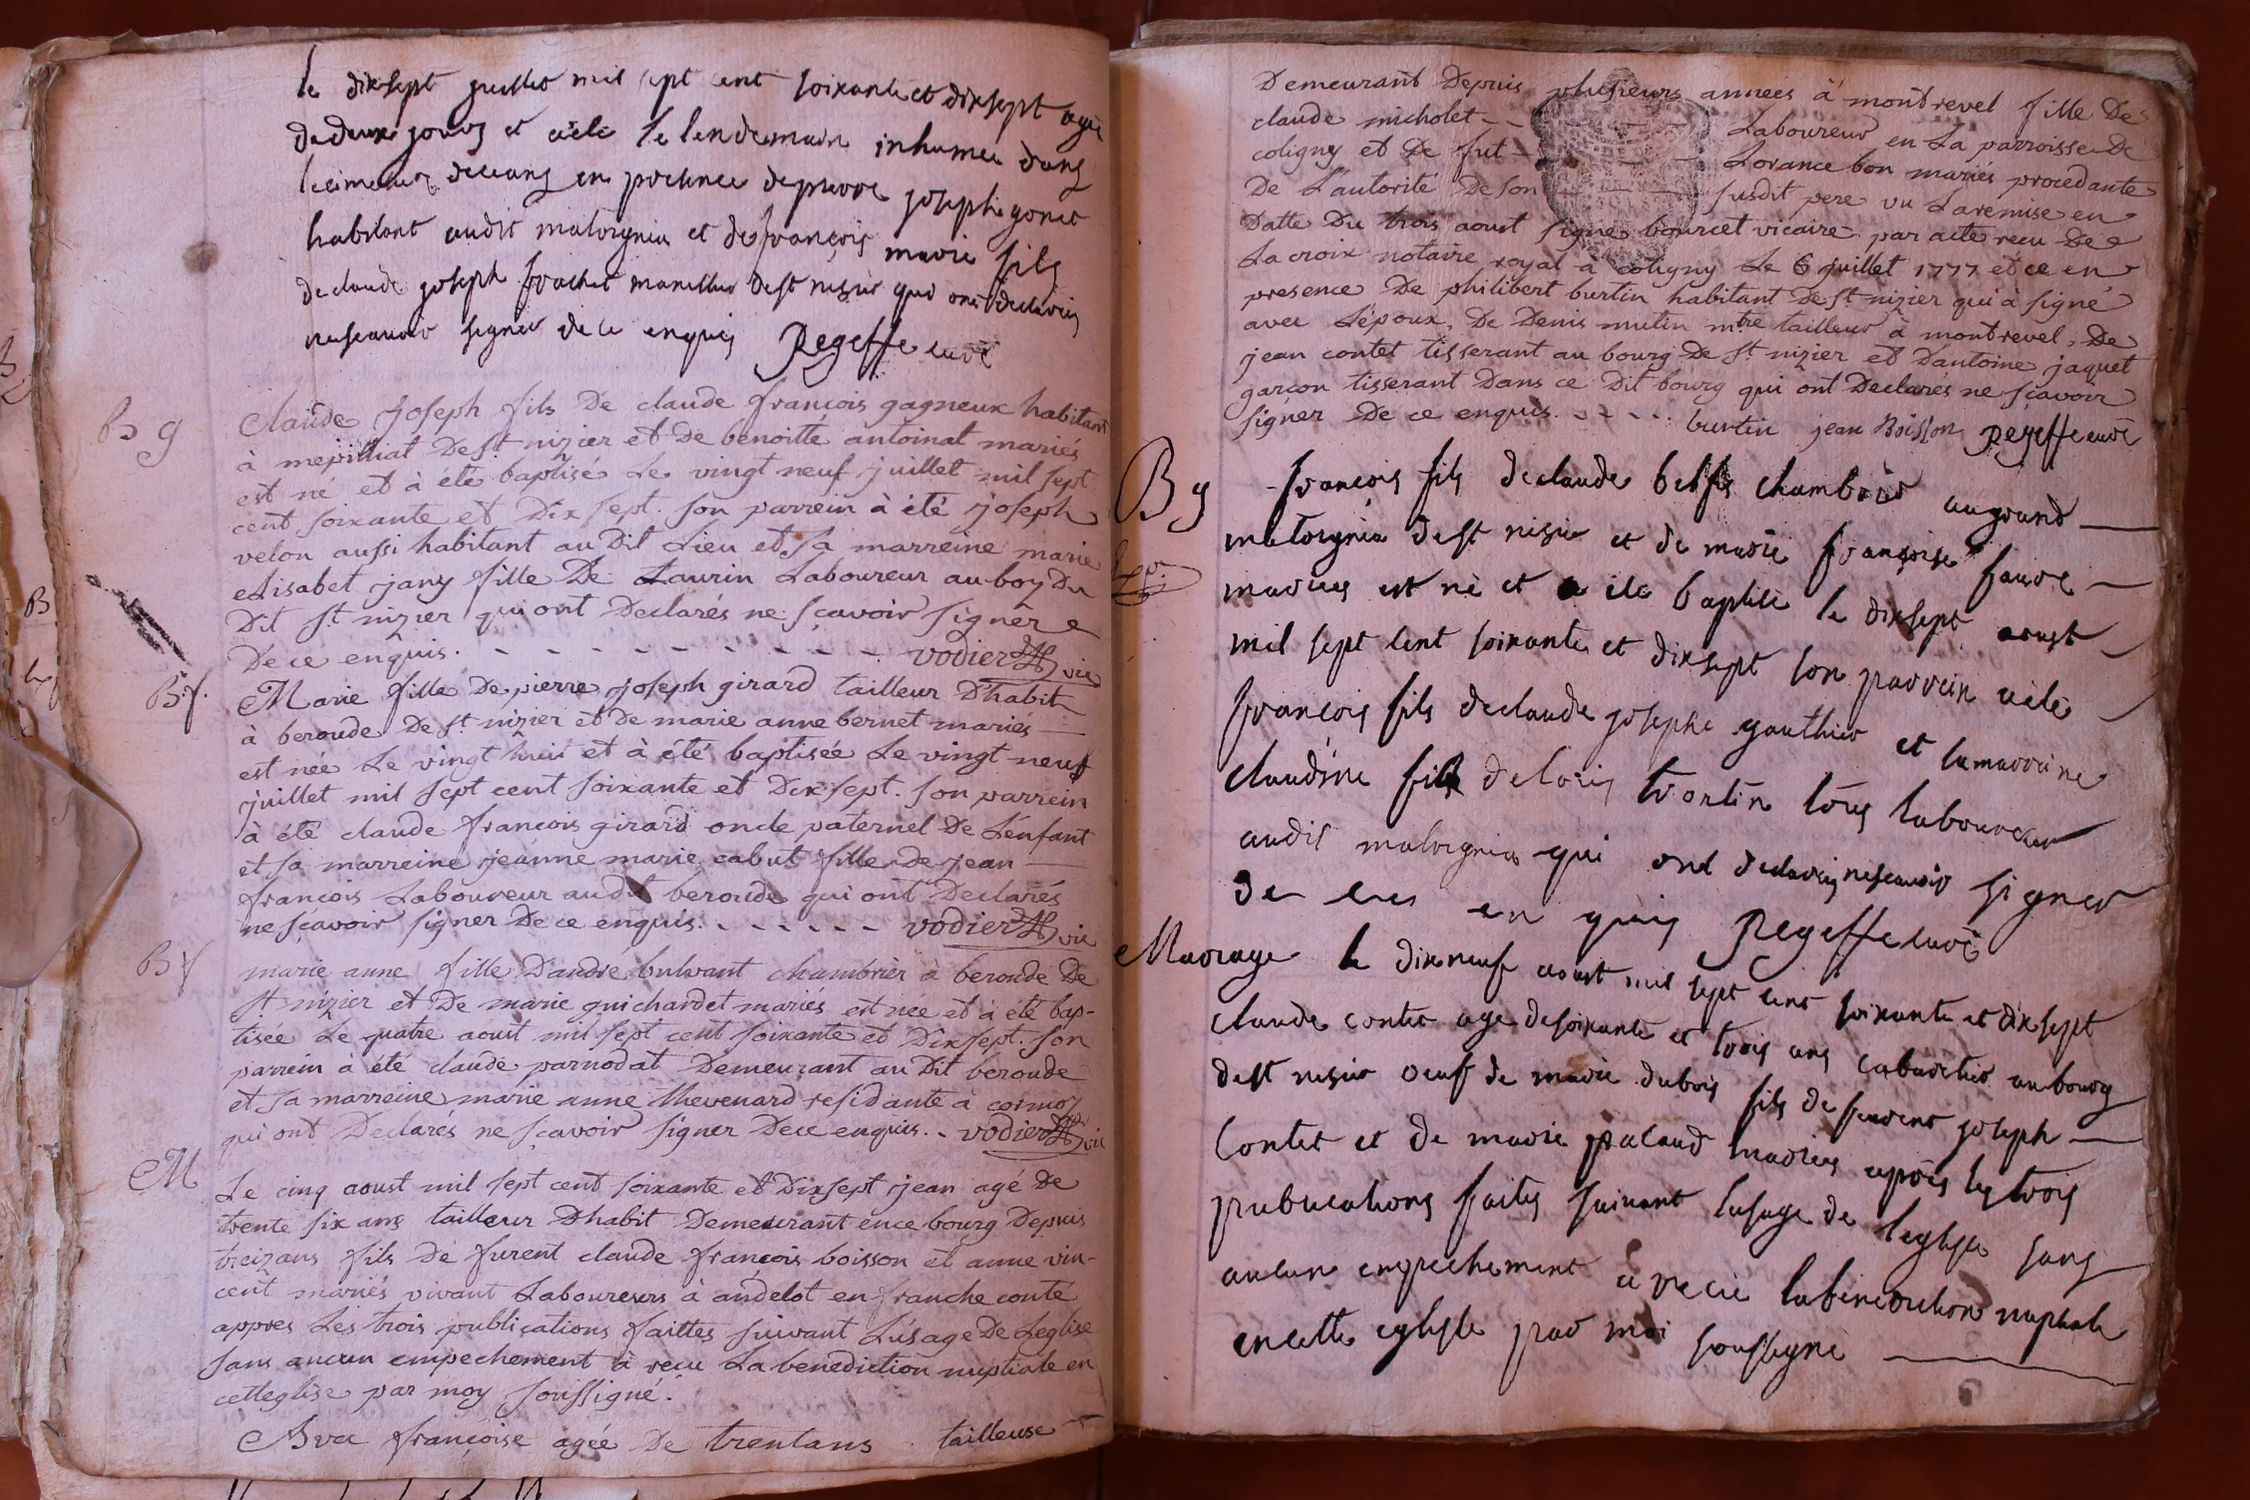 le dixsept juillet mil sept cent soixante et dixsept agé
de deux jours et a été le lendemain inhumée dans
le cimetiere de ceans en presence de pierre joseph gonet
habitant audit malvigniu et de françois marie fils
de claude joseph frachet de st nizier qui ont declarés
ne scavoir signer de ce enquis Regeffe curé
B g
claude joseph fils De claude françois gagneux habitant
à mepilliat De st nizier et de benoitte antoinat mariés
est né et à été baptisé Le vingt neuf juillet mil sept
cent soixante et Dix sept. son parrein à été joseph
velon aussi habitant au Dit Lieu et sa marreine marie
elisabet jany fille De Laurin Laboureur au boy Du
Dit st nizier qui ont Declarés ne sçavoir signer
De ce enquis. - - - - - - - - - - vodier vic
B f.
Marie fille De pierre joseph girard tailleur D'habit
à beroude De st nizier et de marie anne bernet mariés
est née Le vingt huit et à été baptisée Le vingt neuf
juillet mil sept cent soixante et Dixsept. son parrein
à été claude françois girard oncle paternel De L'enfant
et sa marreine jeanne marie cabut fille de jean
françois Laboureur au dit beroude qui ont Declarés
ne sçavoir signer De ce enquis. - - - - - - vodier vic
B f
marie anne fille D'andré bulvant chambrier à beroude De
st nizier et De marie guichardet mariés est née et à été bap-
tisée Le quatre aout mil sept cent soixante et Dixsept. son
parrein à été claude parnodat Demeurant au Dit beroude
et sa marreine marie anne thevenard residante à cormoz
qui ont Declarés ne sçavoir signer Dece enquis. - vodier vic
M
Le cinq aoust mil sept cent soixante et Dixsept jean agé De
trente six ans tailleur D'habit Demeurant en ce bourg Depuis
treizans fils De furent claude françois boisson et anne vin-
cent mariés vivant Laboureurs à andelot en franche conté
appres Les trois publications faittes suivant L'usage De Leglise
sans aucun empechement à recu La benediction nuptiale en
cetteglise par moy soussigné.
Avec françoise agée De trentans tailleuse
Demeurant Depuis plusieurs années à montrevel fille De
claude micholet - - Laboureur en La parroisse De
coligny et De fut - - Lorance bon mariés procedante
De L'autorité De son - - susdit pere vu La remise en
Datte Du trois aoust signé bourcet vicaire par acte recu De
La croix notaire royal à coligny Le 6 juillet 1777 et ce en
presence De philibert burtin habitant De st nizier qui à signé
avec L'époux, De Denis mutin mtre tailleur à montrevel, De
jean contet tisserant au bourg De st nizier et D'antoine jaquet
garcon tisserant Dans ce Dit bourg qui ont Declarés ne sçavoir
signer De ce enquis. - - - - burtin jean Boisson Regeffe curé
B g
françois fils de claude chambrier au grand
malvigniu de st nizie et de marie françoise favre
mariés est né et a été baptisé le dixsept aoust
mil sept cent soixante et dixsept son parrein a été
françois fils de claude josephe gauthier et la marreine
claudine fille de loüis tous laboureur
audit malvigniu qui ont declarés ne scavoir signer
de ces en quis Regeffe curé
Mariage
le dix neuf aoust mil sept cent soixante et dixsept
claude contet agé de soixante et trois ans cabaretier au bourg
de st nizier veuf de marie dubois fils de feurent joseph
contet et de marie pacaud mariés après les trois
publications faites suivant lusage de leglise sans
aucun empechement a recu la benediction nuptiale
en cette eglise par moi soussigné